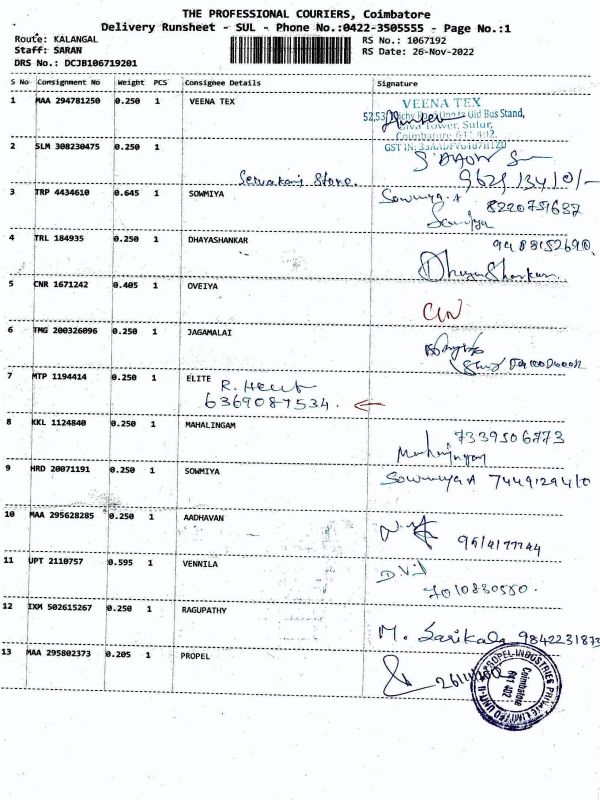 THE PROFESSIONAL COURIERS, Coimbatore
Delivery Runsheet - SUL - Phone No.:0422-3505555 - Page No.:1
Route: KALANGAL RS No.: 1067192
Staff: SARAN RS Date: 26-Nov-2022
DRS No.: DCJB106719201
S No Consignment No Weight PCS Consignee Details Signature
1 MAA 294781250 0.250 1 VEENA TEX
VEENA TEX
Old Bus Stand,
Tower, Sulur,
Coimbatore
GST IN:
2 SLM 308230475 0.250 1
Store.
3 TRP 4434610 0.645 1 SOWMIYA Sowmiya.A 8220751637
4 TRL 184935 0.250 1 DHAYASHANKAR 9488152690
5 CNR 1671242 0.405 1 OVEIYA
6 TMG 200326096 0.250 1 JAGAMALAI
7 MTP 1194414 0.250 1 ELITE
6369087534.
8 KKL 1124840 0.250 1 MAHALINGAM 7339506773
9 HRD 20071191 0.250 1 SOWMIYA Sowmiya A 7449129410
10 MAA 295628285 0.250 1 AADHAVAN
11 UPT 2110757 0.595 1 VENNILA
7010830550.
12 IXM 502615267 0.250 1 RAGUPATHY M. Sarikala 9842231873
13 MAA 295802373 0.205 1 PROPEL
PROPEL INDUSTRIES PRIVATE LIMITED UNIT-II
Coimbatore
641 402